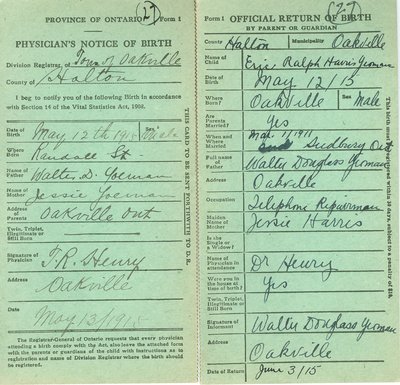 PROVINCE OF ONTARIO Form 1
(27)
PHYSICIAN'S NOTICE OF BIRTH
Division Registrar of Town of Oakville
County of Halton
I beg to notify you of the following Birth in accordance
with Section 14 of the Vital Statistics Act, 1908.
Date of Birth May 12th 1915 Sex Male
Where Born Randall St
Name of Father Walter D. Yoeman
Name of Mother Jessie Yoeman
Address of Parents Oakville Ont
Twin, Triplet, Illegitimate or Still Born
Signature of Physician T.R. Henry
Address Oakville
Date May 13/1915
The Registrar-General of Ontario requests that every physician
attending a birth comply with the Act, also leave the attached form
with the parents or guardians of the child with instructions as to
registration and name of Division Registrar where the birth should
be registered.
THIS CARD TO BE SENT FORTHWITH TO D.R.
Form 1 OFFICIAL RETURN OF BIRTH
(27)
BY PARENT OR GUARDIAN
County Halton Municipality Oakville
Name of Child Eric Ralph Harris Yeoman
Date of Birth May 12/15
Where Born? Oakville Sex Male
Are Parents Married? Yes
When and Where Married Mar. 1/1911 Sudbury Ont
Full name of Father Walter Douglass Yeoman
Address Oakville
Occupation Telephone Repairman
Maiden Name of Mother Jessie Harris
Is she Single or a Widow?
Name of Physician in attendance Dr Henry
Were you in the house at time of birth? Yes
Twin, Triplet, Illegitimate or Still Born
Signature of Informant Walter Douglass Yeoman
Address Oakville
Date of Return June 3/15
This birth must be registered within 30 days, subject to a penalty of $20.